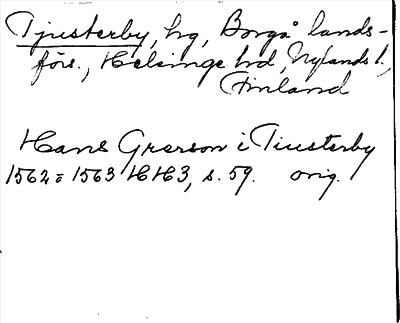 Tjusterby, hg, Borgå lands-
förs., Helsinge hd, Nylands l.,
Finland
Hans Grerson i Tiusterby
1562-1563 HH3, s. 59. orig.